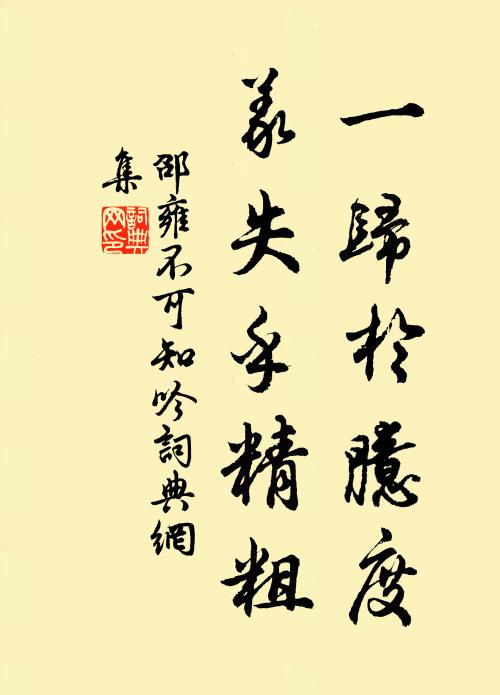 一歸於臆度
義失乎精粗
邵雍不可知吟詞典網
集
詞典網印